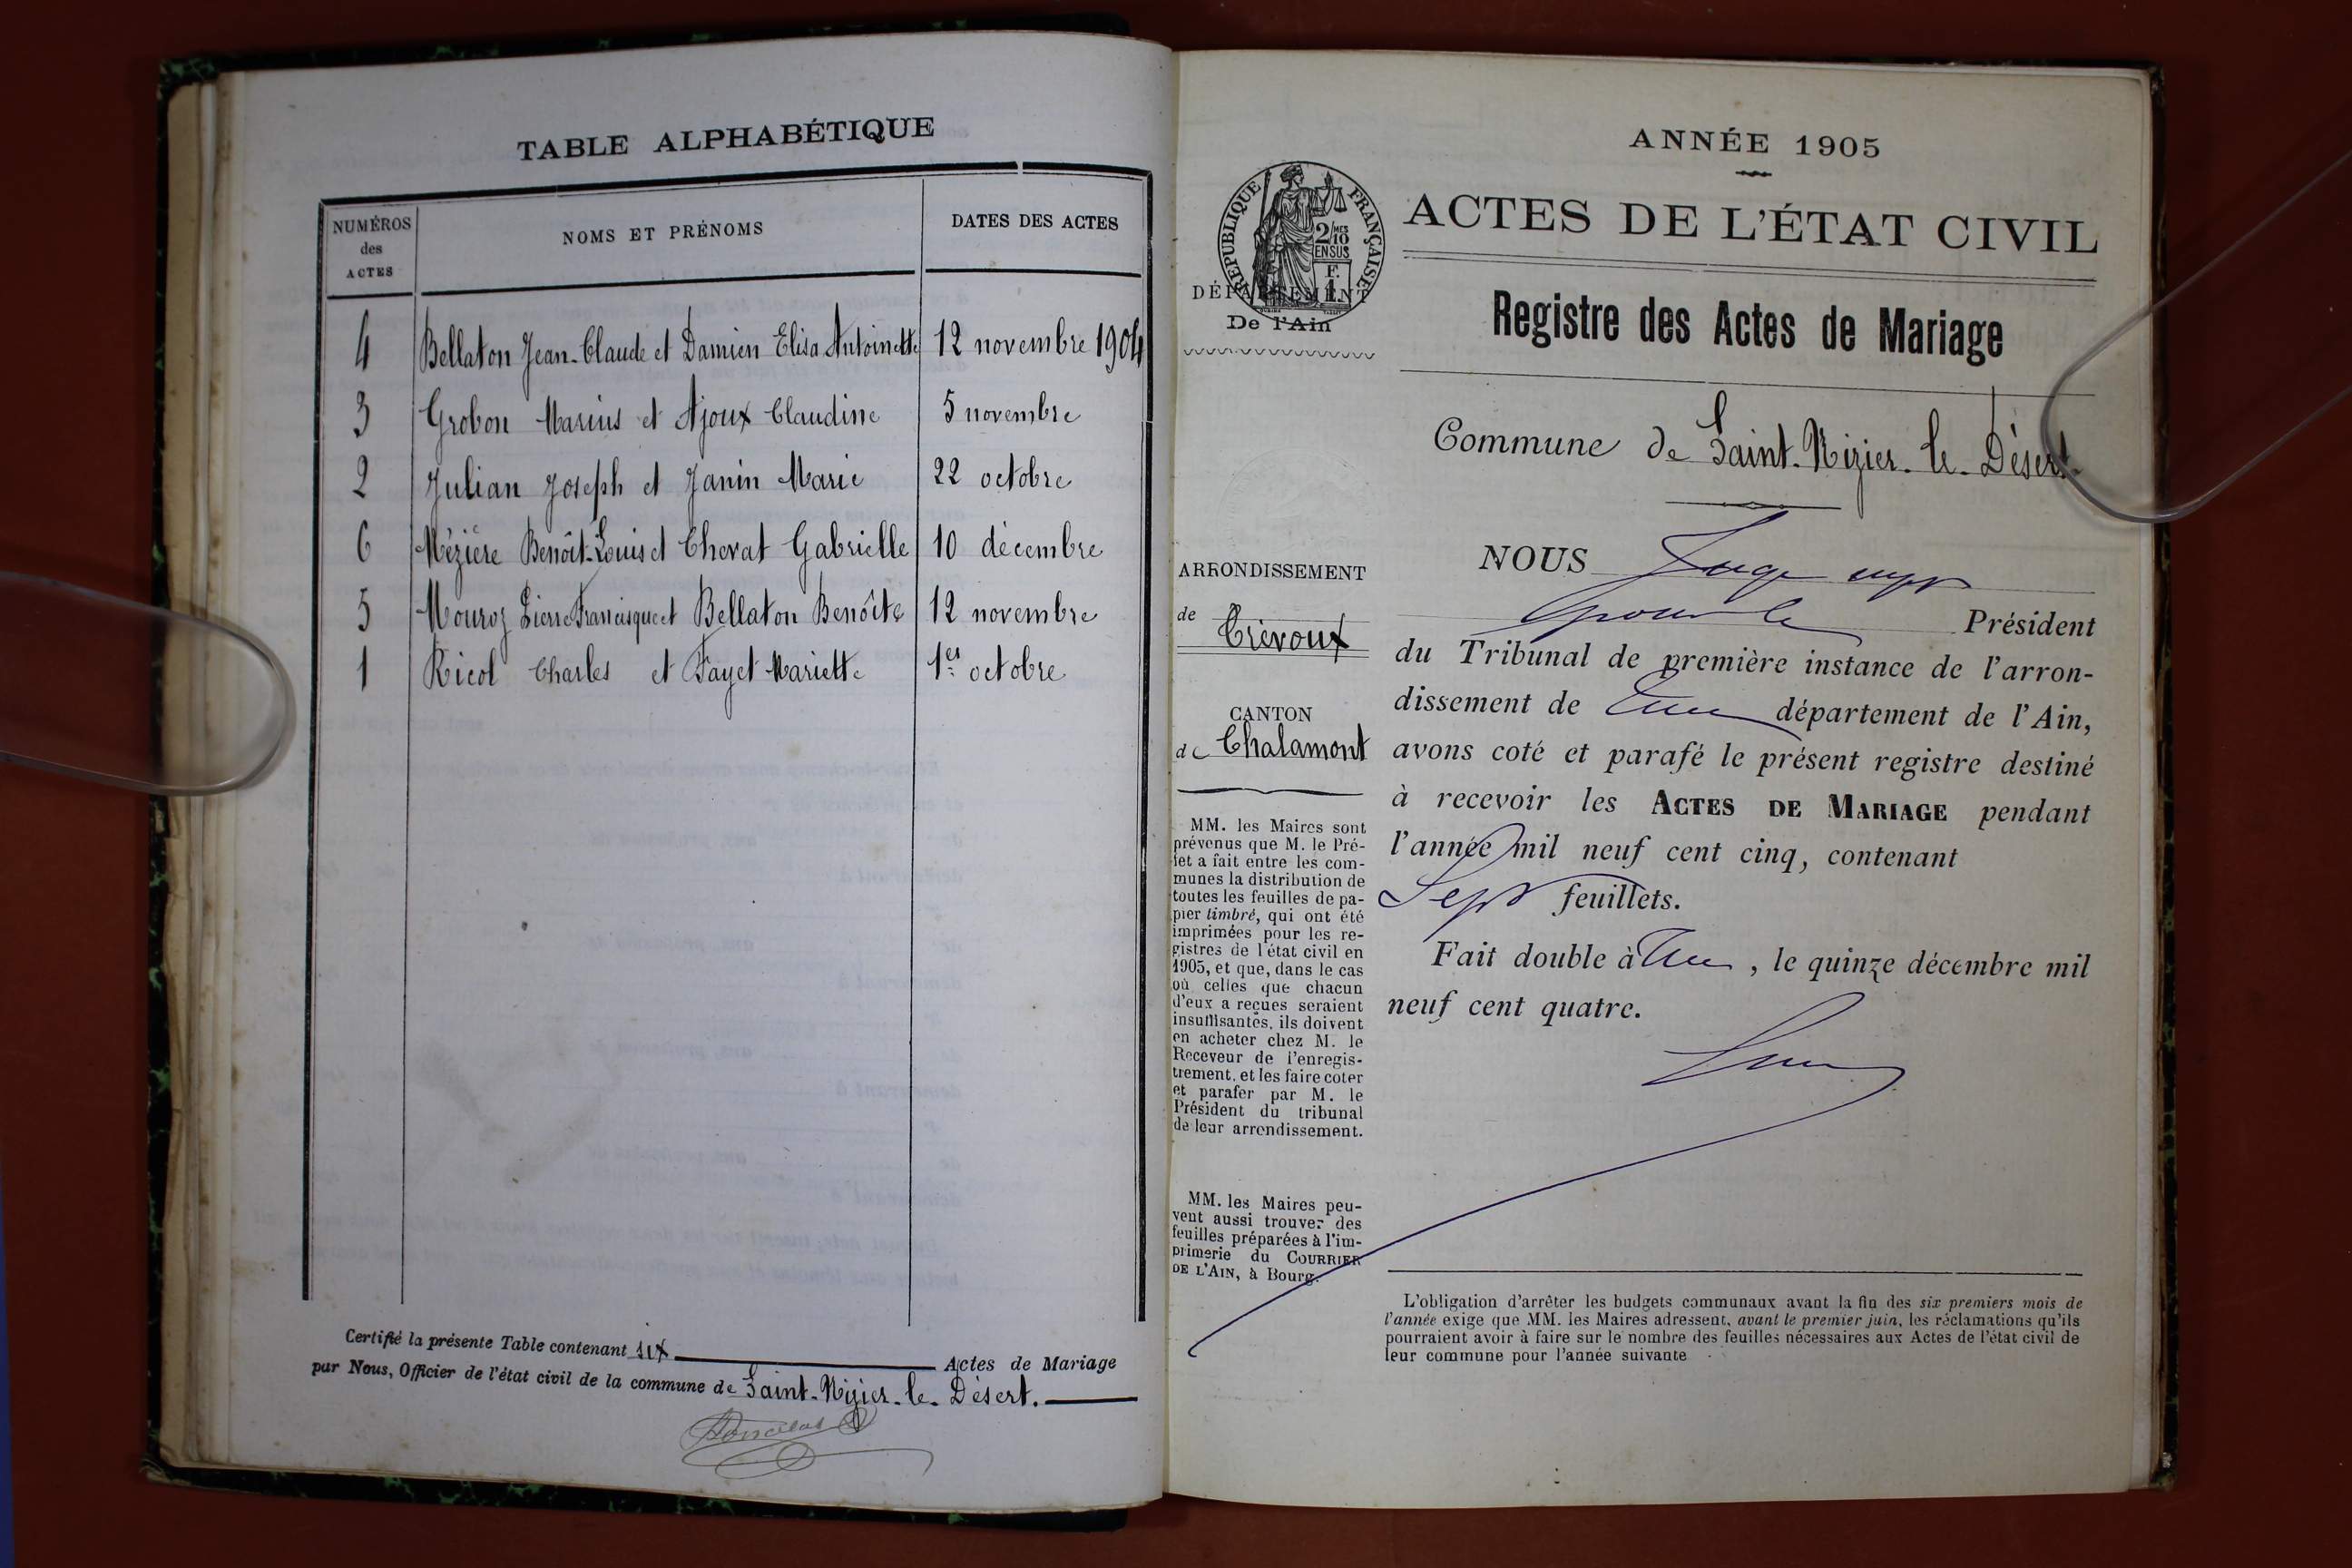 TABLE ALPHABÉTIQUE
NUMÉROS
des
ACTES
NOMS ET PRÉNOMS
DATES DES ACTES
4 Bellaton Jean-Claude et Damien Elisa Antoinette 12 novembre 1904
3 Grobon Marius et Ajoux Claudine 5 novembre
2 Julian Joseph et Janin Marie 22 octobre
6 Mézière Benoît-Louis et Chevat Gabrielle 10 décembre
5 Mouroz Pierre Francisque et Bellaton Benoîte 12 novembre
1 Ricol Charles et Fayet Mariette 1er octobre
Certifié la présente Table contenant six Actes de Mariage
par Nous, Officier de l'état civil de la commune de Saint-Nizier-le-Désert.
ANNÉE 1905
ACTES DE L'ÉTAT CIVIL
RÉPUBLIQUE FRANÇAISE
2/10MES
EN SUS
F.
1
DÉPARTEMENT
De l'Ain
Registre des Actes de Mariage
Commune de Saint-Nizier-le-Désert
ARRONDISSEMENT
de Trévoux
CANTON
de Chalamont
MM. les Maires sont
prévenus que M. le Pré-
fet a fait entre les com-
munes la distribution de
toutes les feuilles de pa-
pier timbré, qui ont été
imprimées pour les re-
gistres de l'état civil en
1905, et que, dans le cas
où celles que chacun
d'eux a reçues seraient
insuffisantes, ils doivent
en acheter chez M. le
Receveur de l'enregis-
trement, et les faire coter
et parafer par M. le
Président du tribunal
de leur arrondissement.
MM. les Maires peu-
vent aussi trouver des
feuilles préparées à l'im-
primerie du COURRIER
DE L'AIN, à Bourg.
NOUS Juge supp
pour le Président
du Tribunal de première instance de l'arron-
dissement de département de l'Ain,
avons coté et parafé le présent registre destiné
à recevoir les ACTES DE MARIAGE pendant
l'année mil neuf cent cinq, contenant
Sept feuillets.
Fait double à , le quinze décembre mil
neuf cent quatre.
L'obligation d'arrêter les budgets communaux avant la fin des six premiers mois de
l'année exige que MM. les Maires adressent, avant le premier juin, les réclamations qu'ils
pourraient avoir à faire sur le nombre des feuilles nécessaires aux Actes de l'état civil de
leur commune pour l'année suivante